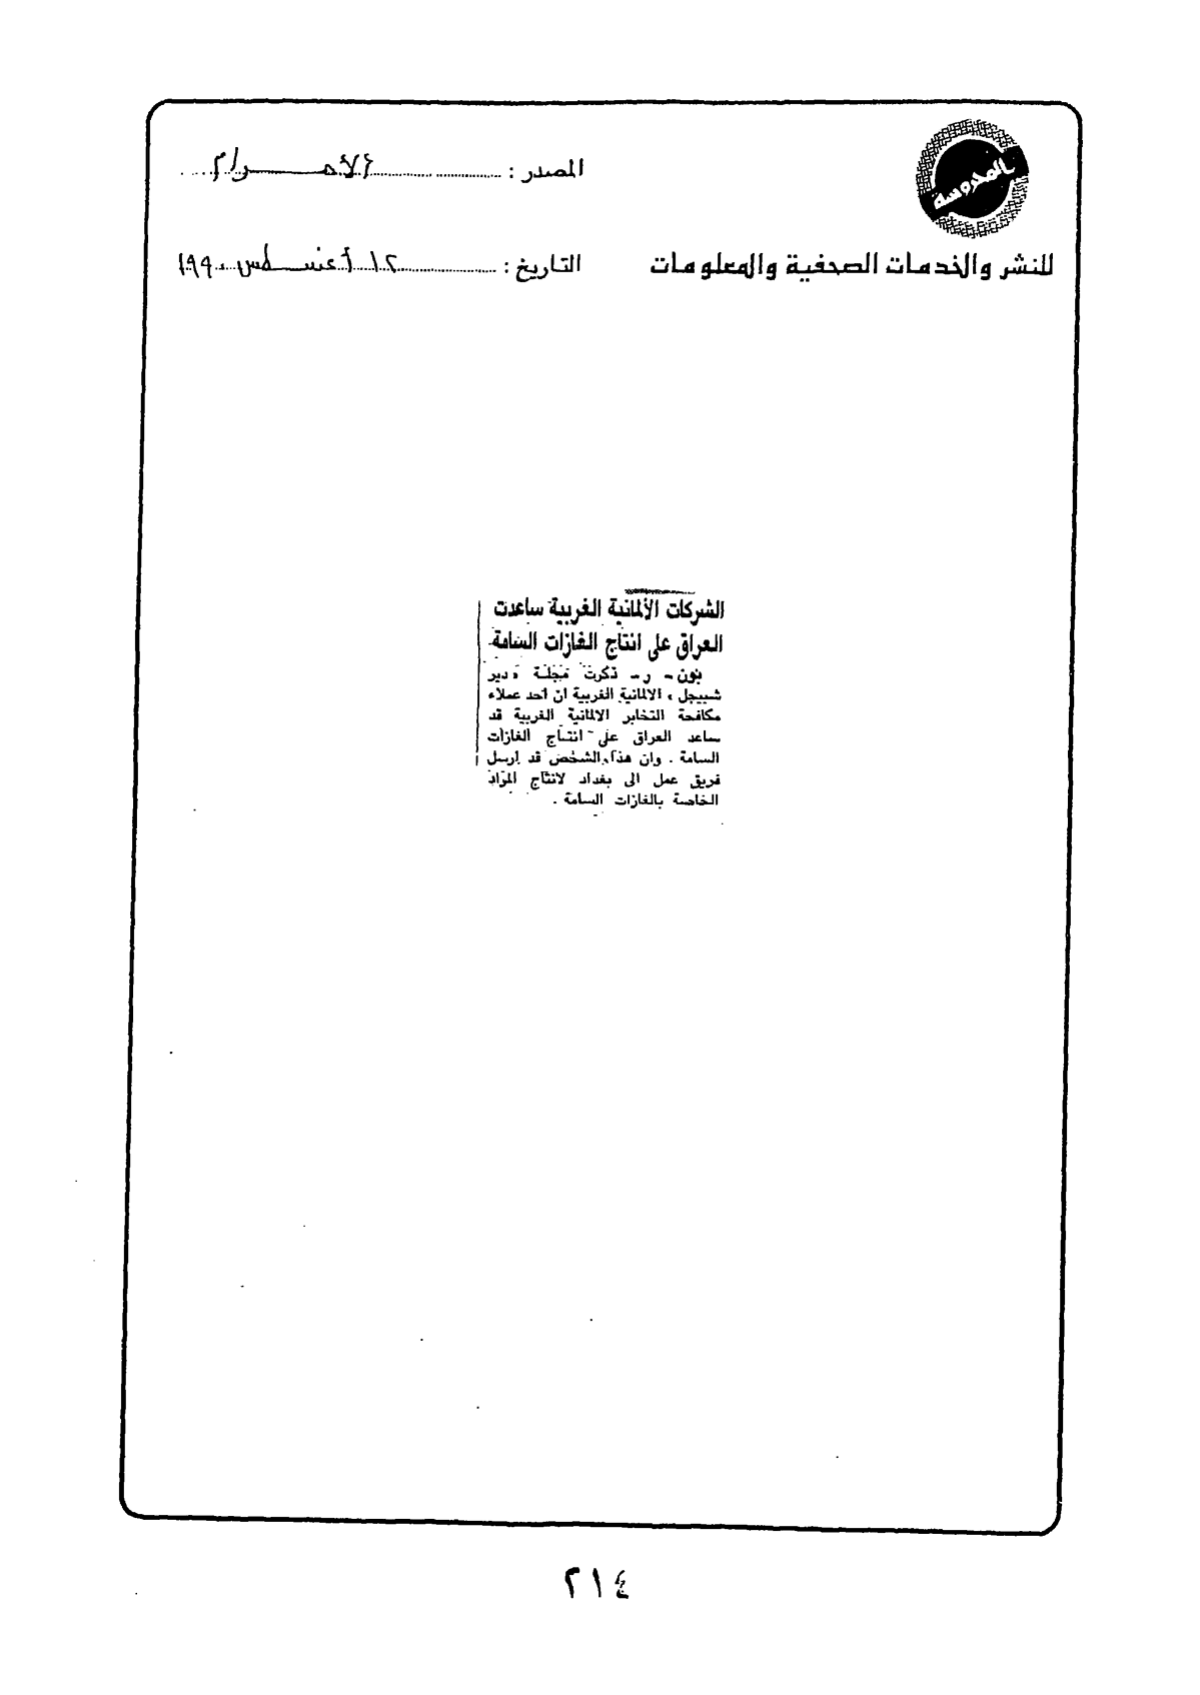 المحروسة
للنشر والخدمات الصحفية والمعلومات
المصدر : الأهرام
التاريخ : ١٢ أغسطس ١٩٩٠
الشركات الألمانية الغربية ساعدت
العراق على انتاج الغازات السامة
بون - ر - ذكرت مجلة « دير
شبيجل » الالمانية الغربية ان احد عملاء
مكافحة التخابر الالمانية الغربية قد
ساعد العراق على انتاج الغازات
السامة . وان هذا الشخص قد ارسل
فريق عمل الى بغداد لانتاج المواد
الخاصة بالغازات السامة .
٢١٤